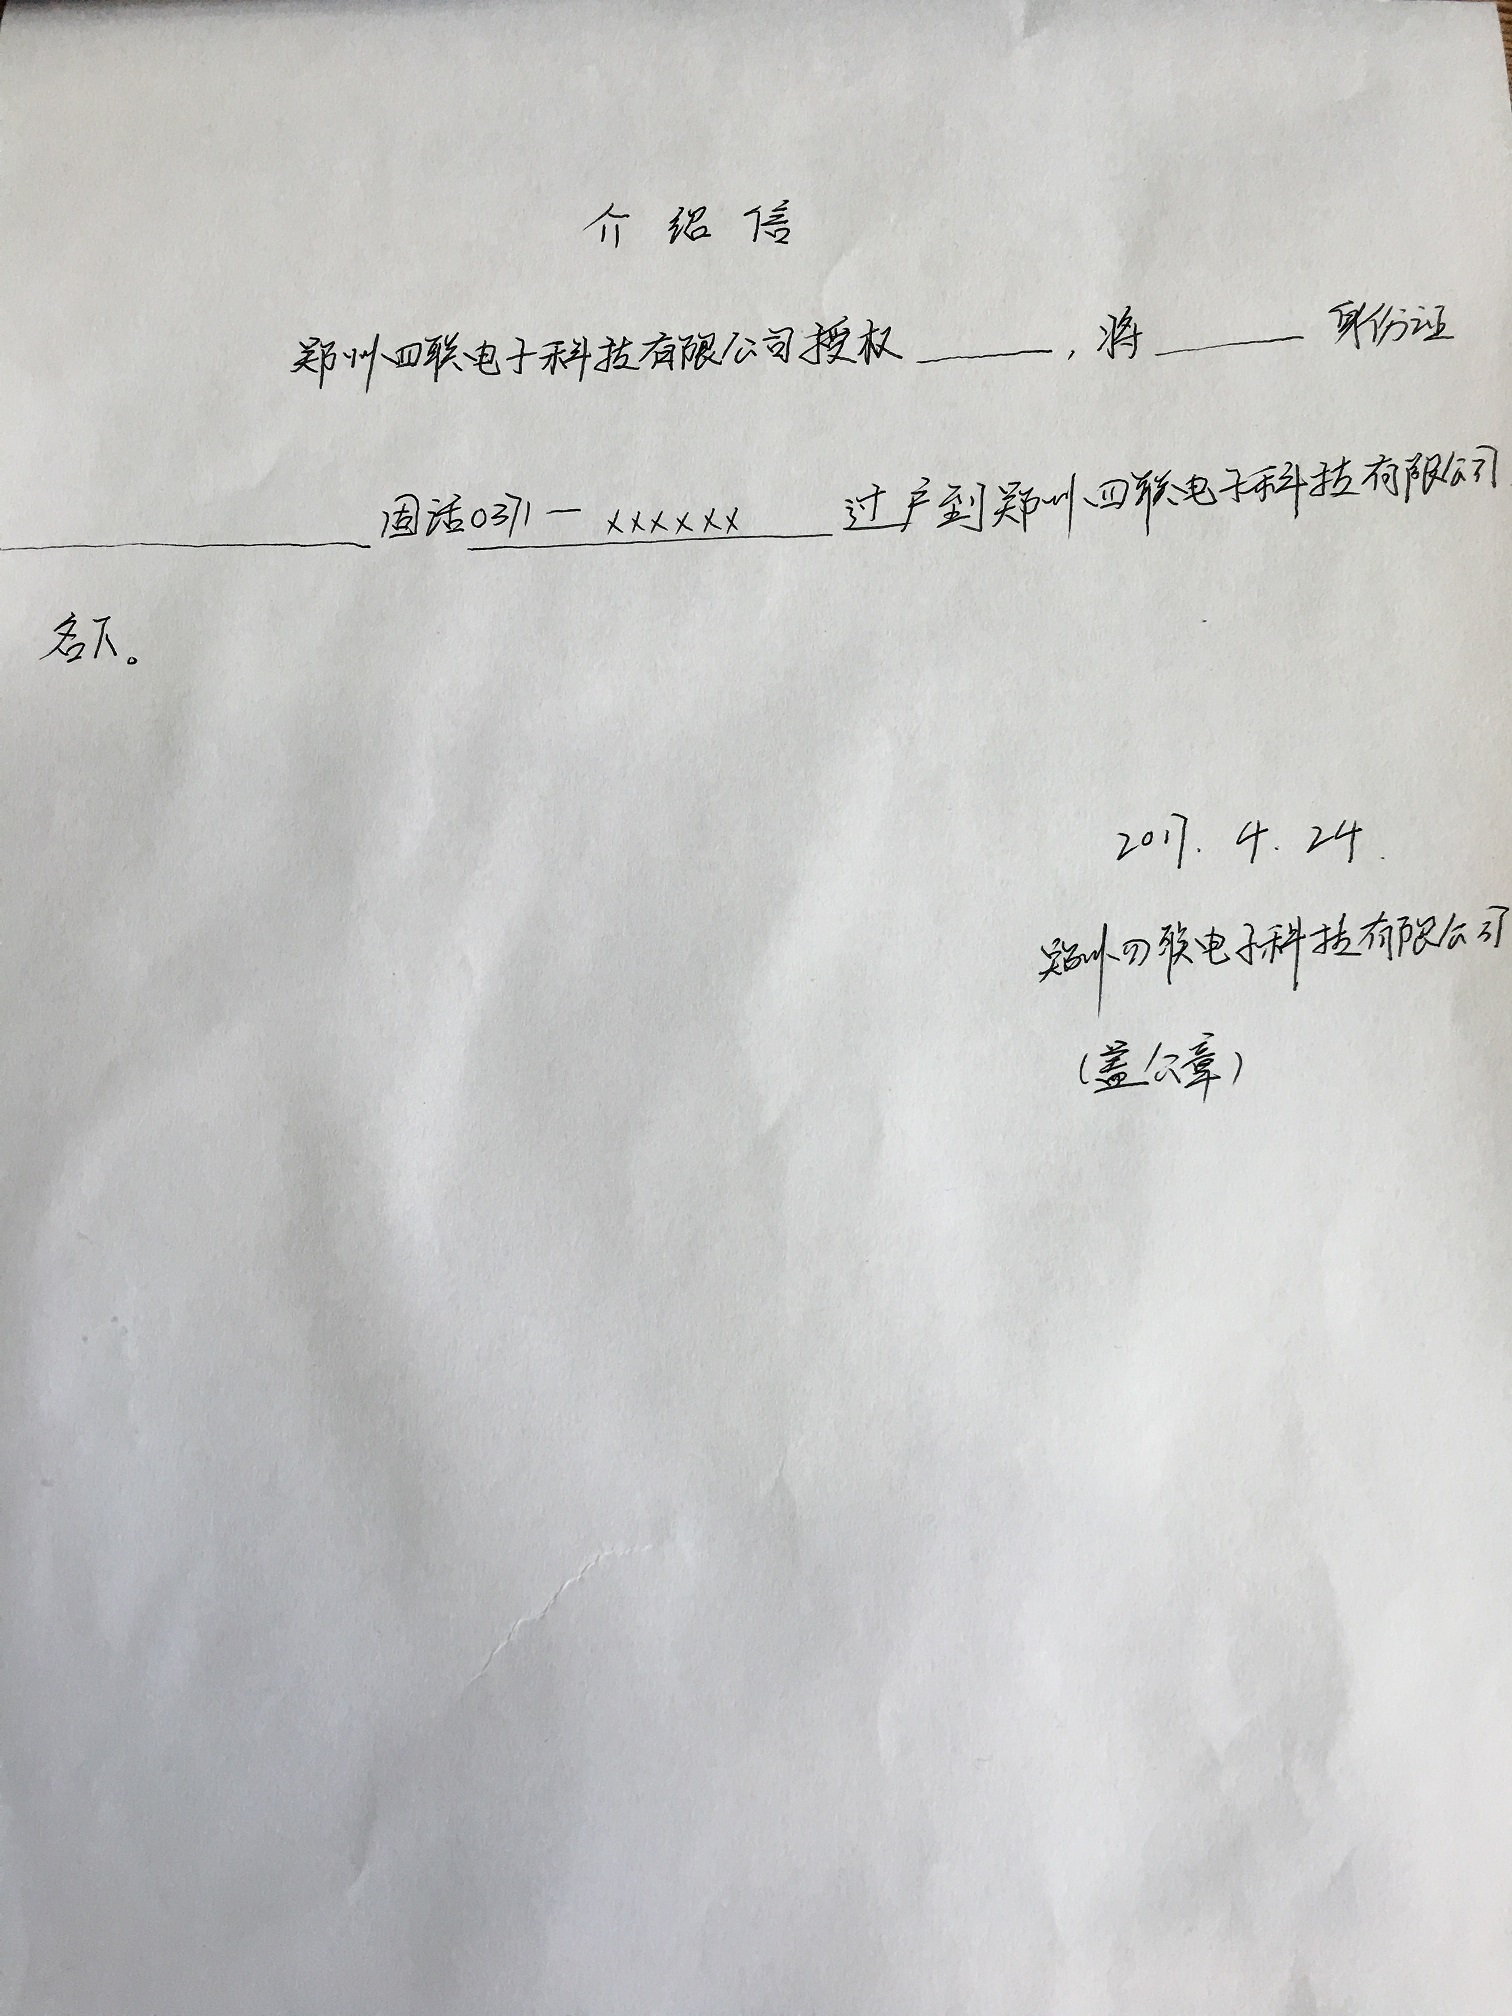 介绍信
郑州四联电子科技有限公司授权______,将______身份证
______固话0371-xxxxxx过户到郑州四联电子科技有限公司
名下。
2017.4.24.
郑州四联电子科技有限公司
(盖公章)